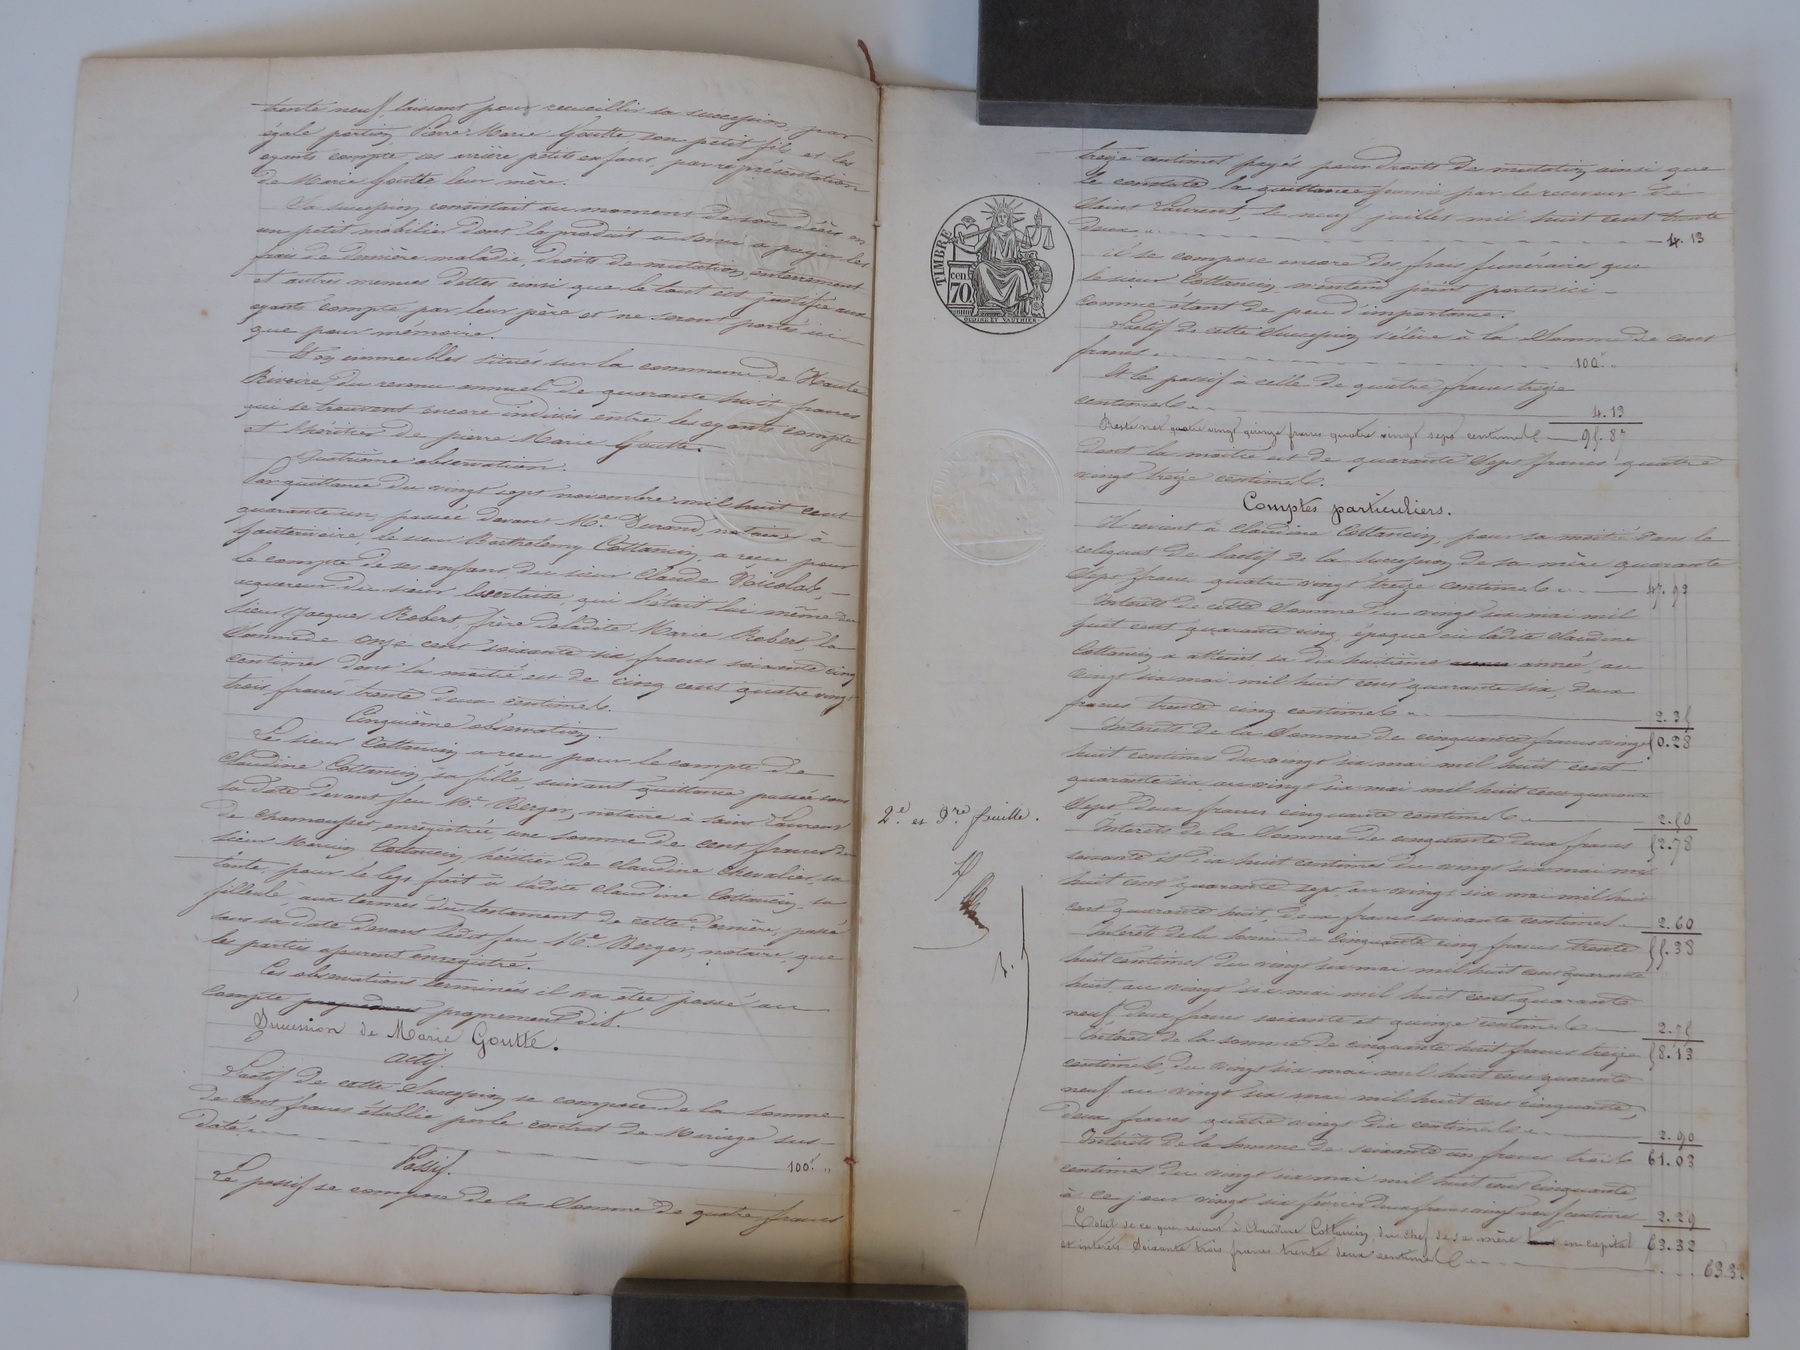 trente neuf, laissant pour recueillir sa succession, par
égale portion Pierre Marie Goutte, son petit fils, et les
oyants compte, ses arrière petits enfans, par représentation
de Marie Goutte leur mère.
Sa succession consistait au moment de son décès en
un petit mobilier dont le produit a servi a payer les
frais de dernière maladie, droits de mutation, enterrement
et autres menues dettes ainsi que le tout est justifié aux
oyants compte par leur père et ne seront portés ici
que pour mémoire.
Et en immeubles situés sur la commune de Haute
Rivoire du revenu annuel de quarante huit francs
qui se trouvent encore indivis entre les oyants compte
et l'héritier de pierre Marie Goutte.
Quatrième observation.
Par quittance du vingt sept novembre mil huit cent
quarante un, passée devant Me. Durand, notaire à
hauterivoire, le sieur Barthelemy Cottancin, a reçu pour
le compte de ses enfans, du sieur Claude Nicolas,
acquéreur du sieur qui l'était lui même du
sieur Jacques Robert, frère de ladite Marie Robert, la
somme de onze cent soixante six francs soixante cinq
centimes dont la moitié est de cinq cent quatre vingt
trois francs trente deux centimes.
Cinquième observation.
Le sieur Cottancin a reçu pour le compte de
Claudine Cottancin, sa fille, suivant quittance passée sous
sa date devant feu Me. Berger, notaire à saint Laurent
de Chamousset, enregistrée, une somme de cent francs du
sieur Cottancin, héritier de claudine Chevalier, sa
tante, pour le legs fait à ladite claudine Cottancin, sa
filleule, aux termes du testament de cette dernière, passé
sous sa date devant ledit feu Me. Berger, notaire, que
les parties assurent enregistré.
Ces observations terminées il va être passé au
compte proprement dit.
Succession de Marie Goutte.
Actif.
L'actif de cette succession se compose de la somme
de cent francs établie par le contrat de Mariage sus-
daté. 100f. "
Passif.
Le passif se compose de la somme de quatre francs
TIMBRE
cen
70
OUDINÉ ET VAUTHIER
treize centimes payés pour droits de mutation ainsi que
le constate la quittance fournie par le receveur de
Saint Laurent, le neuf juillet mil huit cent trente
deux. 4.13
il se compose encore des frais funéraires que
le sieur Cottancin, n'entend point porter ici
comme étant de peu d'importance.
L'actif de cette succession s'élève à la somme de cent
francs. 100f.
Et le passif à celle de quatre francs treize
centimes 4.13
Reste net quatre vingt quinze francs quatre vingt sept centimes 95.87
Dont la moitié est de quarante sept francs quatre
vingt treize centimes.
Comptes particuliers.
Il revient à claudine Cottancin, pour sa moitié dans le
reliquat de l'actif de la succession de sa mère quarante
sept francs quatre vingt treize centimes 47.93
Intérêts de cette somme du vingt six mai mil
huit cent quarante cinq, époque où ladite claudine
Cottancin a atteint sa dix huitième année, au
vingt six mai mil huit cent quarante six, deux
francs trente cinq centimes 2.35
Intérêts de la somme de cinquante francs vingt 50.28
huit centimes du vingt six mai mil huit cent
quarante six au vingt six mai mil huit cent quarante
sept deux francs cinquante centimes 2.50
Intérêts de la somme de cinquante deux francs 52.78
soixante et dix huit centimes du vingt six mai mil
huit cent quarante sept, au vingt six mai mil huit
cent quarante huit, deux francs soixante centimes 2.60
Intérêts de la somme de cinquante cinq francs trente 55.38
huit centimes du vingt six mai mil huit cent quarante
huit au vingt six mai mil huit cent quarante
neuf deux francs soixante et quinze centimes 2.75
Intérêts de la somme de cinquante huit francs treize 58.13
centimes, du vingt six mai mil huit cent quarante
neuf au vingt six mai mil huit cent cinquante,
deux francs quatre vingt dix centimes 2.90
Intérêts de la somme de soixante un francs trois 61.03
centimes du vingt six mai mil huit cent cinquante,
à ce jour vingt six février deux francs vingt neuf centimes 2.29
Total de ce que revient à Claudine Cottancin, du chef de sa mère en capital 63.32
et intérêts Soixante trois francs trente deux centimes 63.32
2e. et 3re. feuille.